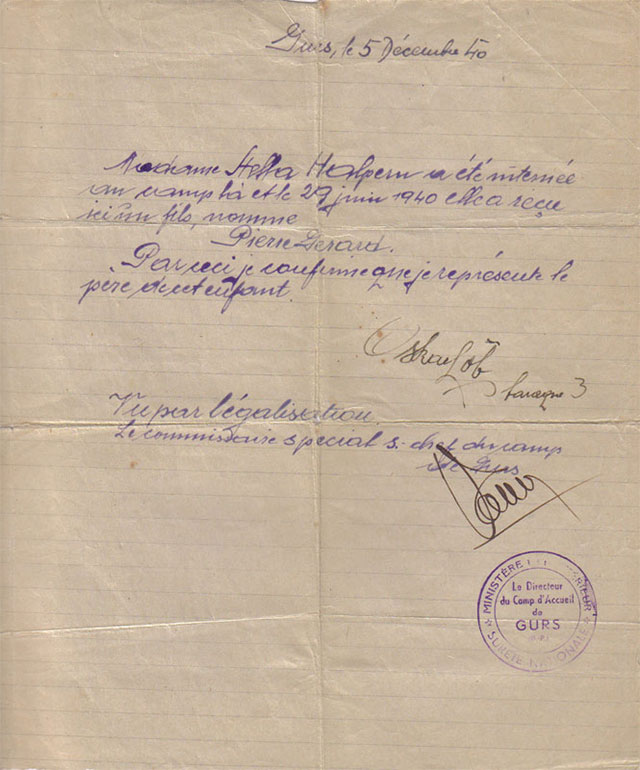 Gurs, le 5 Décembre 40
Madame Stella Halpern a été internée
au camp là et le 29 juin 1940 elle a reçu
ici un fils, nommé
Pierre Gerard.
Par ceci je confirme que je représente le
père de cet enfant.
Oskar Löb
baraque 3
Vu par légalisation.
Le commissaire spécial S. chef du camp
de Gurs
MINISTÈRE
Le Directeur
du Camp d'Accueil
de
GURS
SURETÉ NATIONALE